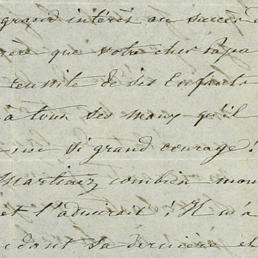 grand intérêt au succès
que votre cher Papa
réussite de ses Enfants
à tous ses maux qu'il
si grand courage!
Martiaz combien mon
et l'admirait; Il m'a
sa dernière et